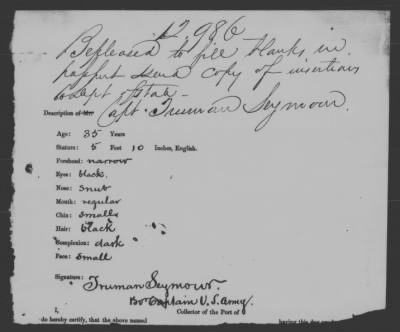 12,986
Be pleased to fill blanks in
passport send copy of insertions
to dept of State -
Description of Mr. Capt. Truman Seymour.
Age: 35 Years
Stature: 5 Feet 10 Inches, English.
Forehead: narrow
Eyes: black.
Nose: snub
Mouth: regular
Chin: small
Hair: black
Complexion: dark
Face: small
Signature:
Truman Seymour.
Bvt Captain U.S. Army.
I, Collector of the Port of
do hereby certify, that the above named having this day